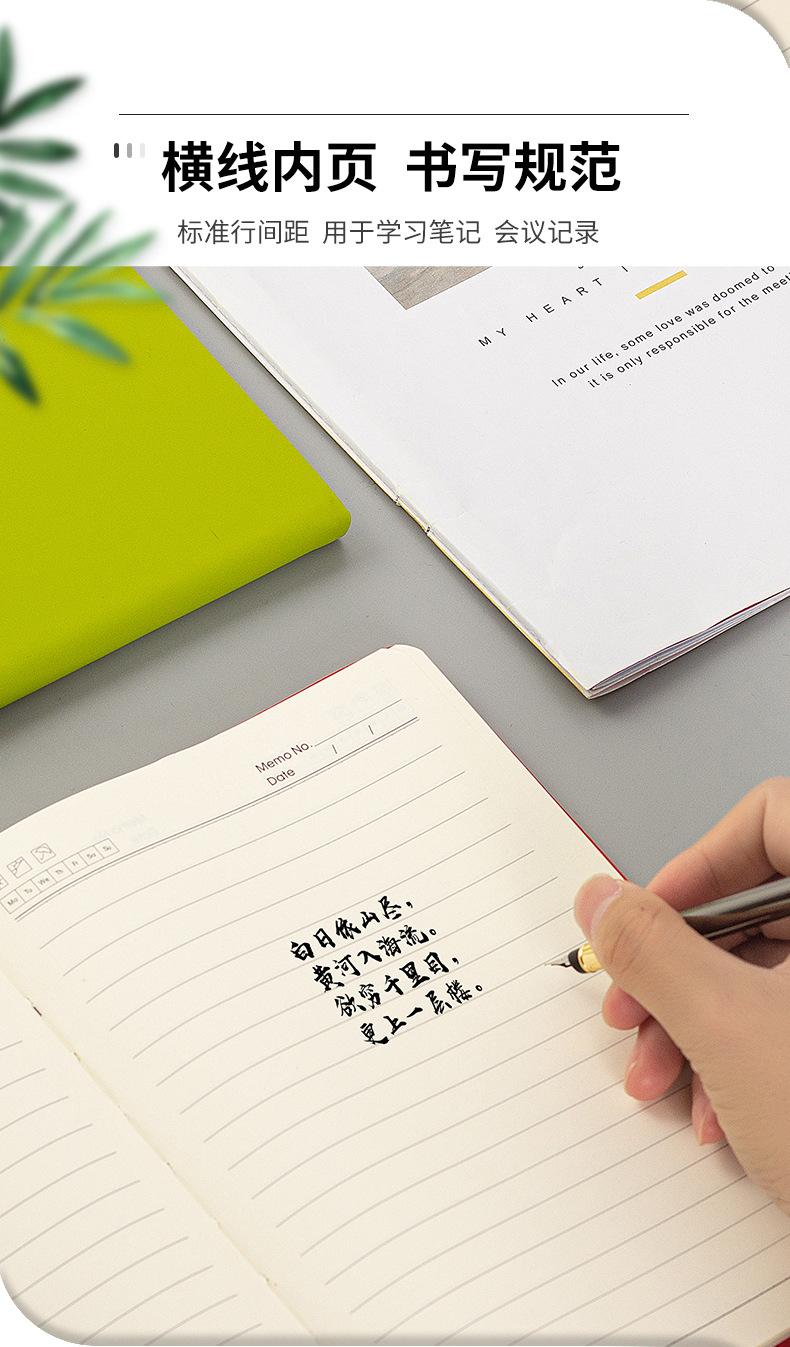 横线内页 书写规范
标准行间距 用于学习笔记 会议记录
MY HEART
In our life, some love was doomed to
it is only responsible for the
Memo No.
Date / /
Mo Tu We Th Fr Sa Su
白日依山尽，
黄河入海流。
欲穷千里目，
更上一层楼。